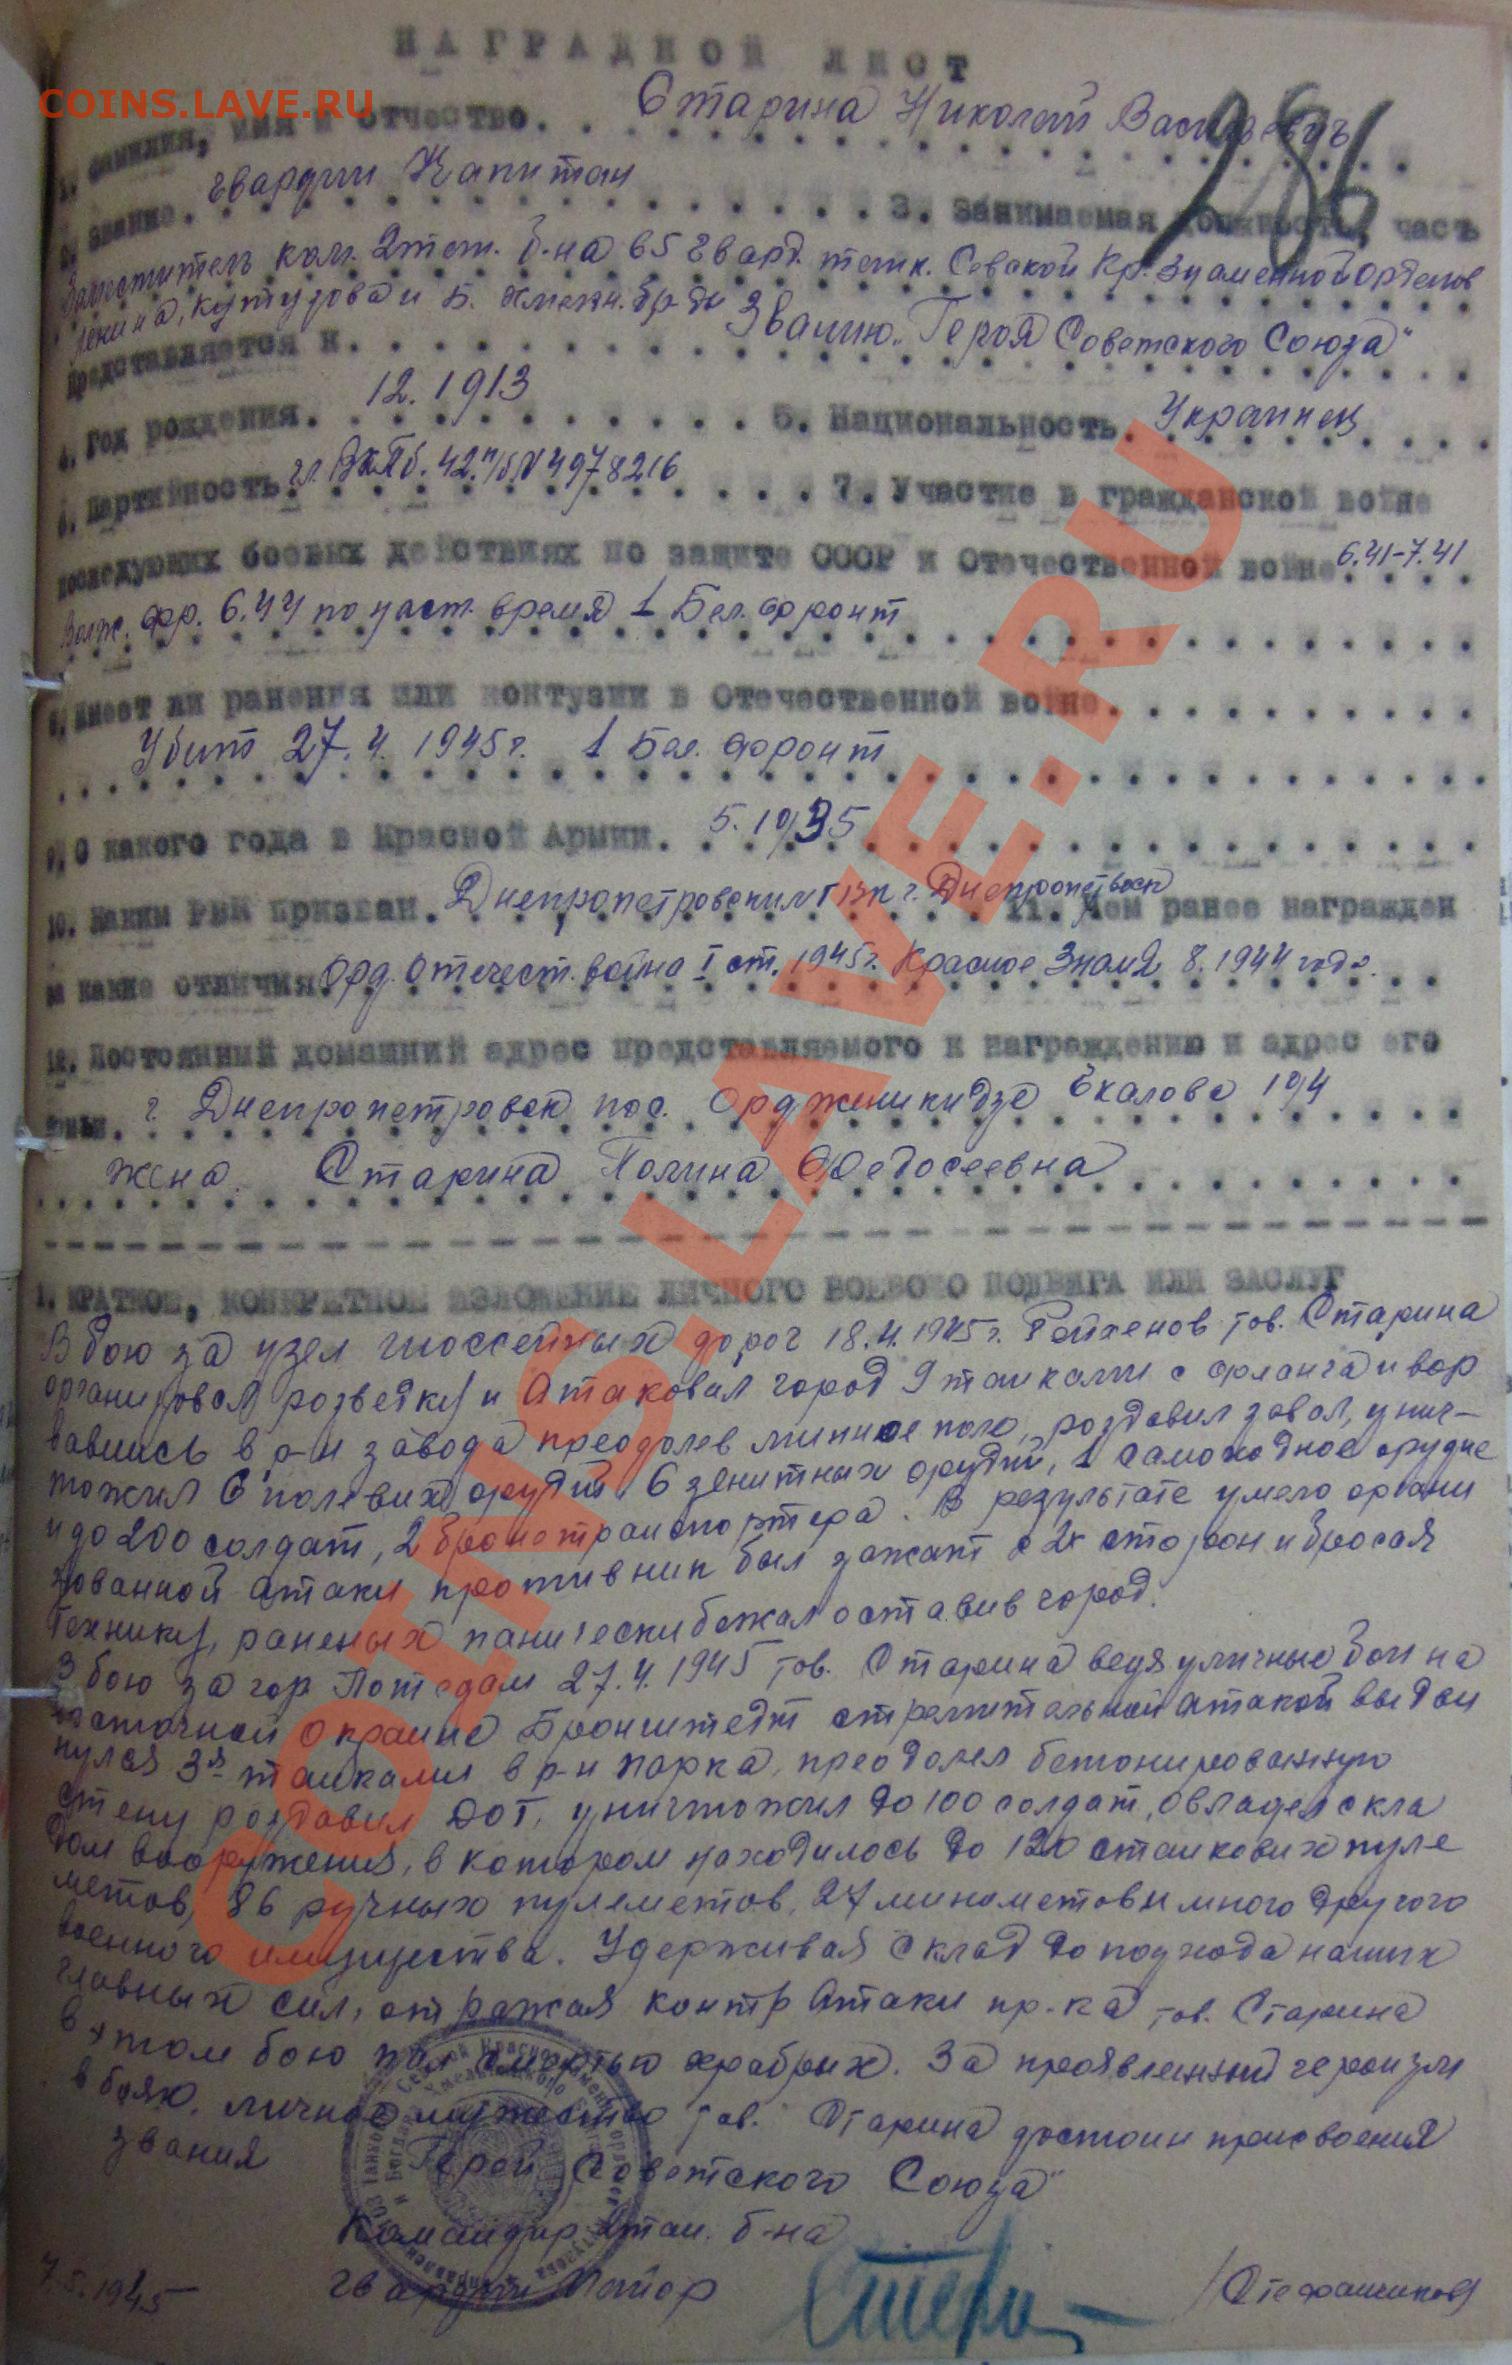 НАГРАДНОЙ ЛИСТ
COINS.LAVE.RU
1. Фамилия, имя и отчество. Старина Николай Васильевич
286
2. Звание. гвардии Капитан 3. Занимаемая должность, часть
Заместитель ком. 2 тот. б-на 65 гвард. танк. Севской Кр. Знаменной Орденов
Ленина, Кутузова и Б. Хмельн. бр-ды
Представляется к. Званию „Героя Советского Союза"
4. Год рождения. 12. 1913 5. Национальность. Украинец
6. Партийность чл. ВКПб. 42. п/б. N 4978216 7. Участие в гражданской войне
последующих боевых действиях по защите СССР и Отечественной войне 6.41-7.41
фр. 6.44 по наст. время 1 Бел. фронт
8. Имеет ли ранения или контузии в Отечественной войне.
Убит 27.4. 1945 г. 1 Бел. фронт
9. С какого года в Красной Армии. 5. 1935
10. Каким РВК призван. Днепропетровским ГВК г. Днепропетровск 11. Чем ранее награжден
за какие отличия. Орд. Отечест. война I ст. 1945 г. Красное Знамя 8. 1944 года.
12. Постоянный домашний адрес представляемого к награждению и адрес его
семьи. г. Днепропетровск пос. Орджоникидзе Чкалова 104
жена. Старина Полина Федосеевна
1. КРАТКОЕ, КОНКРЕТНОЕ ИЗЛОЖЕНИЕ ЛИЧНОГО БОЕВОГО ПОДВИГА ИЛИ ЗАСЛУГ
В бою за узел шоссейных дорог 18.4. 1945 г. Рейхенов тов. Старина
организовал розведку и атаковал город 9 танками с фланга и вор
вавшись в р-н завода преодолев минное поле, роздавил завал, унич-
тожил 6 полевих орудий, 6 зенитных орудий, 1 самоходное орудие
и до 200 солдат, 2 бронетранспортера. В результате умело органи
зованной атаки противник был зажат с 2х сторон и бросая
технику, раненых панически бежал оставив город.
В бою за гор Потсдам 27.4. 1945 тов. Старина ведя уличные бои на
восточной окраине Борнштедт стремительной атакой выдви
нулся 3я танками в р-н парка, преодолел бетонированную
стену роздавил ДОТ, уничтожил до 100 солдат, овладел скла
дом вооружения, в котором находилось до 120 станкових пуле
метов, 86 ручных пулеметов, 27 минометов и много другого
военного имущества. Удерживая склад до подхода наших
главных сил, отражая контр атаки пр-ка тов. Старина
в этом бою пал смертью храбрых. За проявленный героизм
в боях, личное мужество тов. Старина достоин присвоения
звания „Герой Советского Союза"
Командир 2 тан. б-на
гвардии Майор /Стефанчиков/
7. 5. 1945
COINS.LAVE.RU